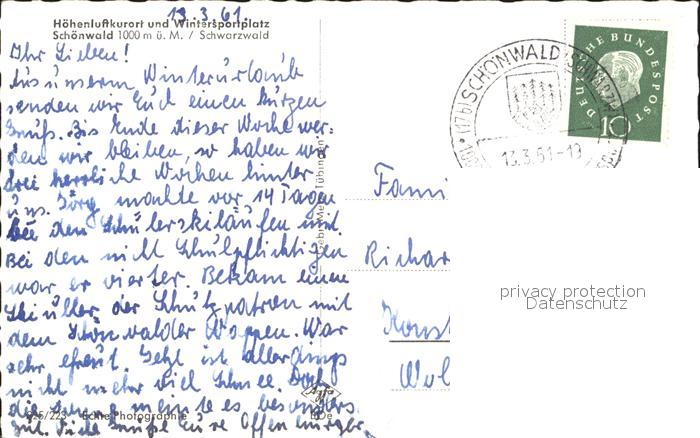 13.3.61.
Höhenluftkurort und Wintersportplatz
Schönwald 1000 m ü. M. / Schwarzwald
Ihr Lieben!
Aus unserm Winterurlaub
senden wir Euch einen kurzen
Gruß. Bis Ende dieser Woche wer-
den wir bleiben, so haben wir
drei herrliche Wochen hinter
uns. Jörg machte vor 14 Tagen
bei den Schülerskiläufen mit.
Bei den nicht Schulpflichtigen
war er vierter. Bekam einen
der Schutzpatron mit
dem Schönwalder Wappen. War
sehr erfreut. Jetzt ist allerdings
nicht mehr viel Schnee. Doch
die Sonne meinte es besonders
gut. Viele Grüße Eure Offenburger
Echte Photographie
Gebr. Metz, Tübingen
Agfa
SCHÖNWALD (SCHWARZW
13.3.61-19
DEUTSCHE BUNDESPOST
10
Fami
Richar
Konst
Wol
privacy protection
Datenschutz